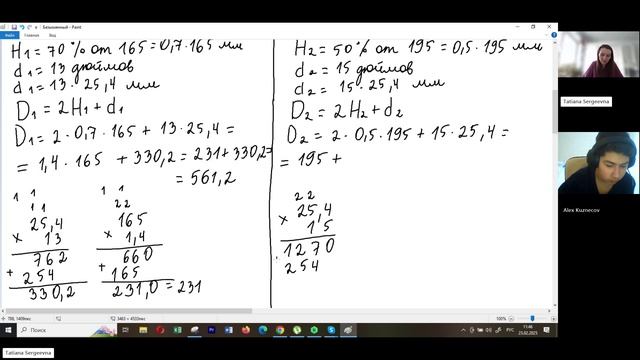 Безымянный - Paint
Файл Главная Вид
H₁ = 70 % от 165 = 0,7 · 165 мм
d₁ = 13 дюймов
d₁ = 13 · 25,4 мм
D₁ = 2H₁ + d₁
D₁ = 2 · 0,7 · 165 + 13 · 25,4 =
= 1,4 · 165 + 330,2 = 231 + 330,2 =
= 561,2
1 1
1 1
25,4
× 13
762
+ 254
330,2
1 1
2 2
165
× 1,4
660
+ 165
231,0 = 231
H₂ = 50 % от 195 = 0,5 · 195 мм
d₂ = 15 дюймов
d₂ = 15 · 25,4 мм
D₂ = 2H₂ + d₂
D₂ = 2 · 0,5 · 195 + 15 · 25,4 =
= 195 +
2 2
25,4
× 15
1270
254
Tatiana Sergeevna
Alex Kuznecov
100%
Поиск
РУС
11:46
25.02.2025
Tatiana Sergeevna